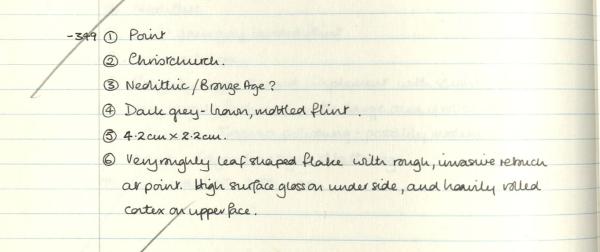 -399 ① Point
② Christchurch.
③ Neolithic / Bronze Age?
④ Dark grey-brown, mottled flint.
⑤ 4.2cm × 2.2cm.
⑥ Very roughly leaf shaped flake with rough, invasive retouch
at point. High surface gloss on under side, and heavily rolled
cortex on upper face.